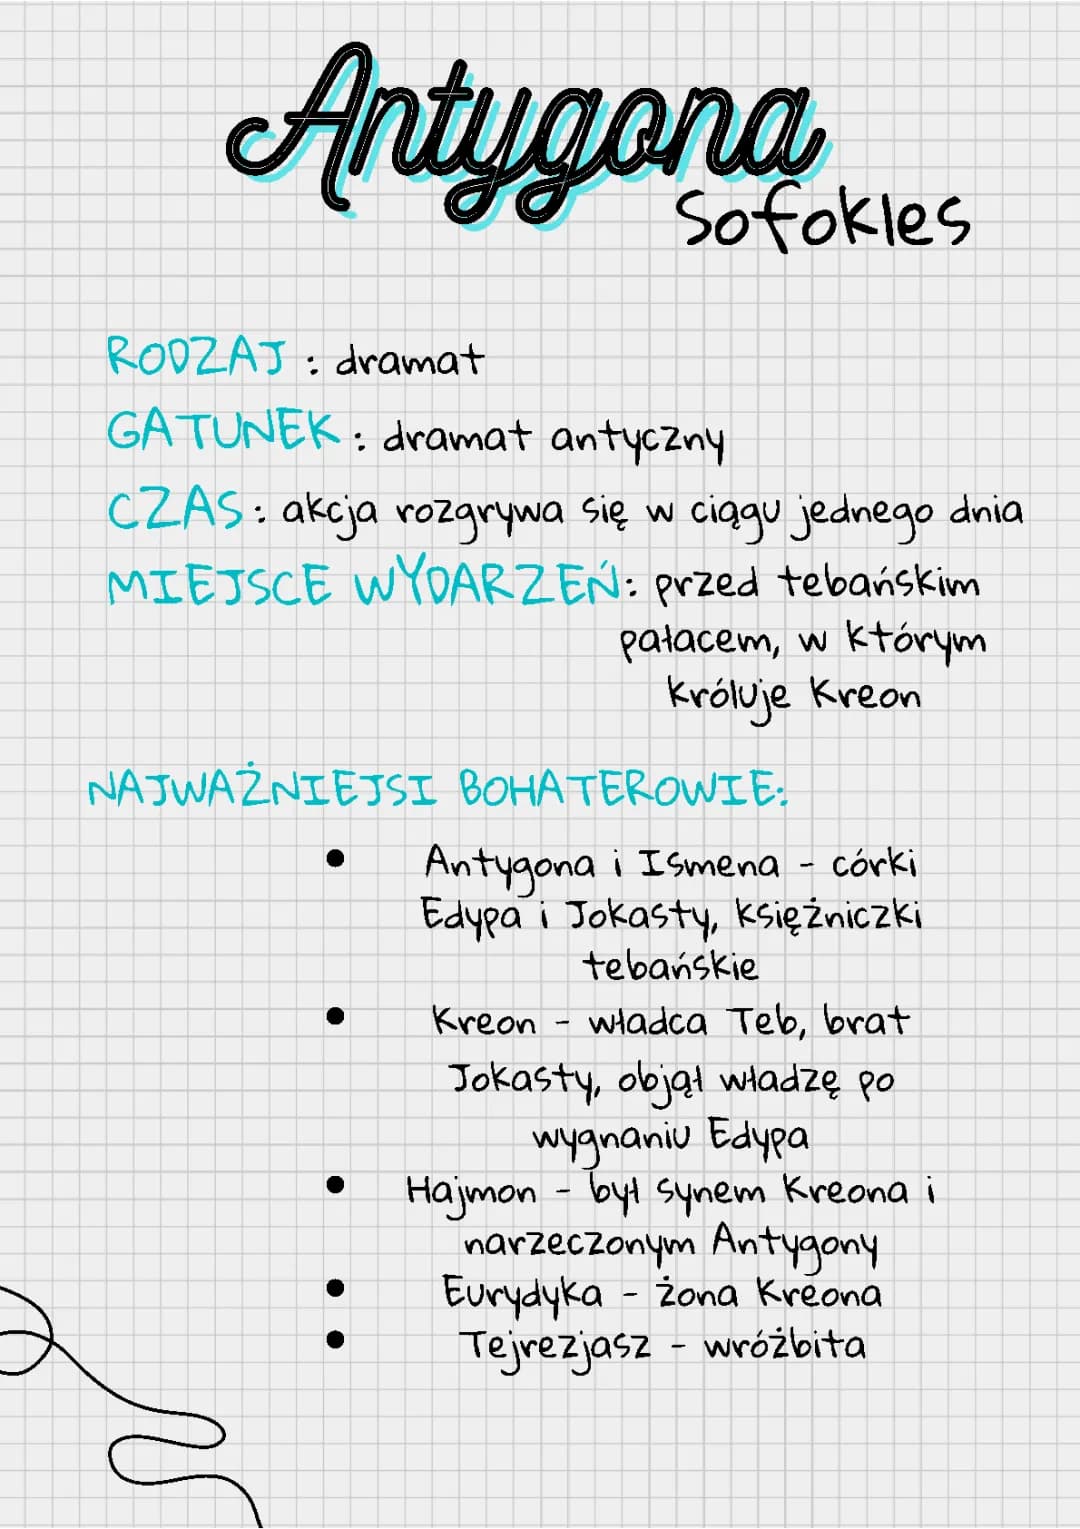 Antygona
Sofokles
RODZAJ : dramat
GATUNEK : dramat antyczny
CZAS : akcja rozgrywa się w ciągu jednego dnia
MIEJSCE WYDARZEŃ: przed tebańskim
pałacem, w którym
króluje Kreon
NAJWAŻNIEJSI BOHATEROWIE:
• Antygona i Ismena - córki
Edypa i Jokasty, księżniczki
tebańskie
• Kreon - władca Teb, brat
Jokasty, objął władzę po
wygnaniu Edypa
• Hajmon - był synem Kreona i
narzeczonym Antygony
• Eurydyka - żona Kreona
• Tejrezjasz - wróżbita